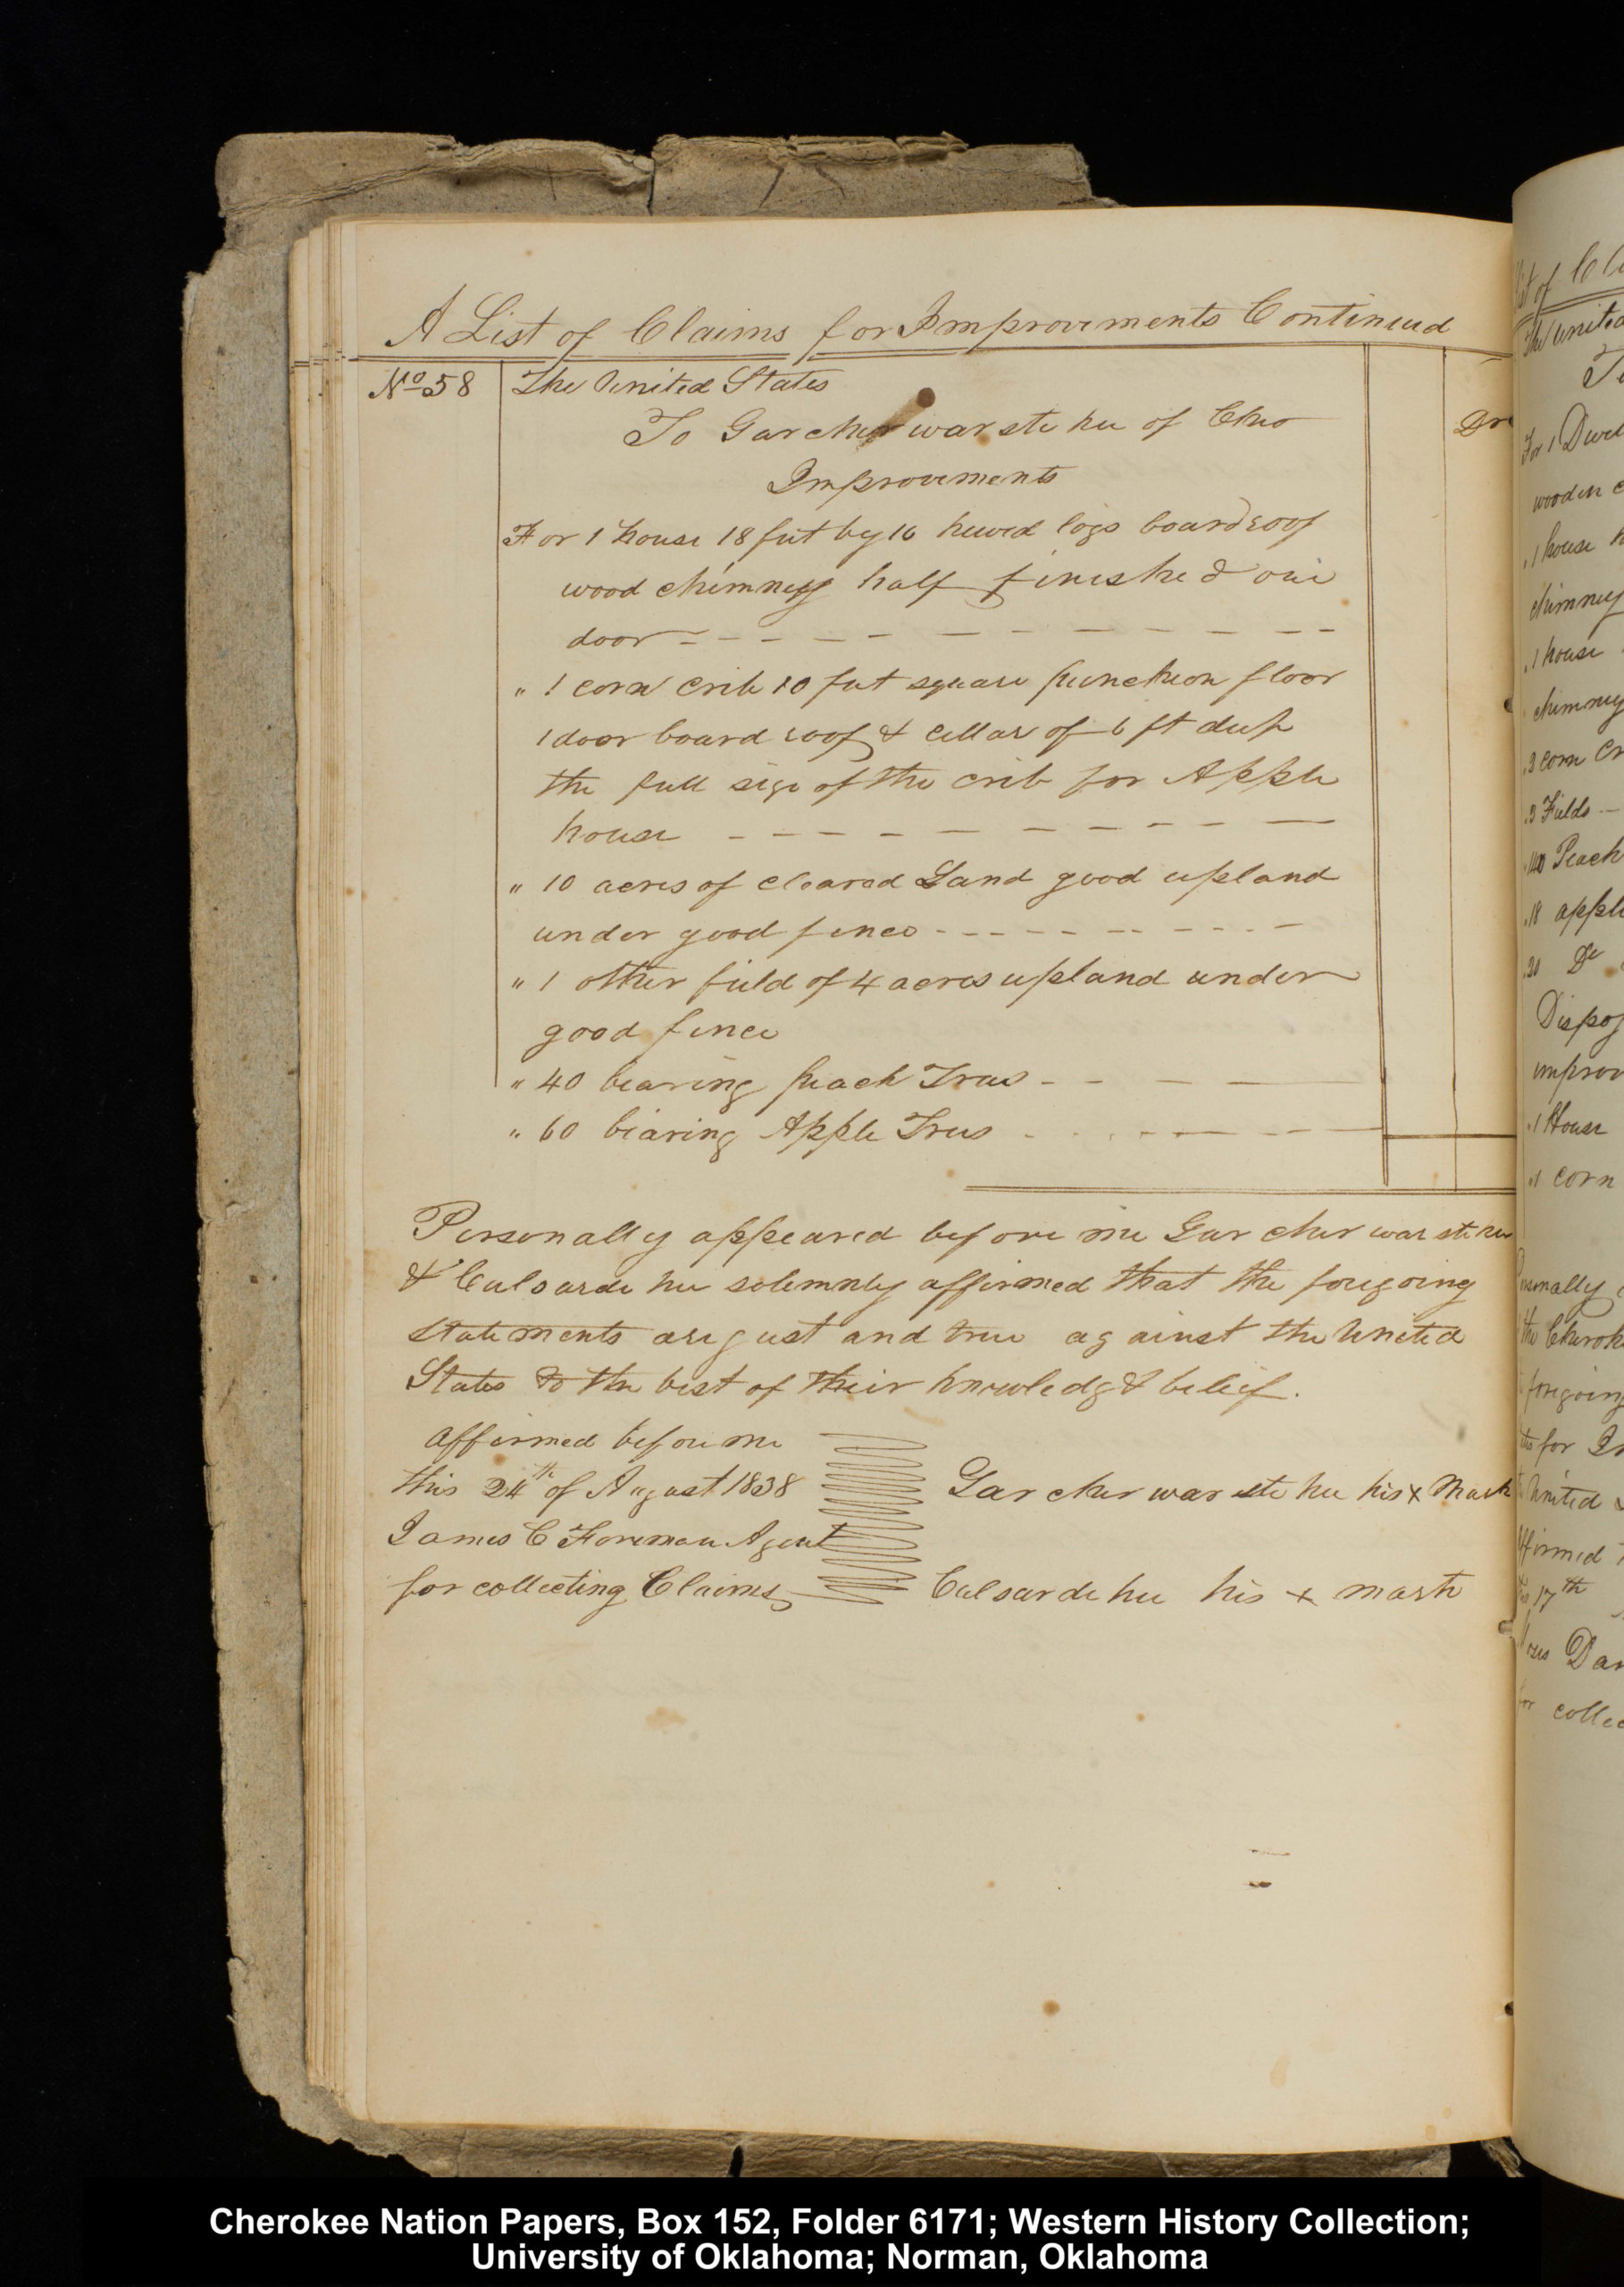 A List of Claims for Improvements Continued
No 58 The United States
To Gar cher war ste hee of Cheo Dr
Improvements
For 1 house 18 feet by 16 hewed logs board roof
wood chimney half finished one
door
" 1 corn crib 10 feet square puncheon floor
1 door board roof & cellar of 6 ft deep
the full size of the crib for Apple
house
" 10 acres of cleared Land good upland
under good fence
" 1 other field of 4 acres upland under
good fence
" 40 bearing peach Trees
" 60 bearing Apple Trees
Personally appeared before me Gar cher war ste hee
& Culsarde hee solemnly affirmed that the foregoing
statements are just and true against the United
States to the best of their knowledg & belief.
Affirmed before me
this 24th of August 1838
James C Foreman Agent
for collecting Claims
Gar cher war ste hee his x Mark
Culsarde hee his x mark
of Cl
The United
To
For 1 Dwel
wooden c
" 1 house h
chimney
" 1 house
chimney
" 2 corn Cr
" 3 Fields
Peach
" 18 apple
Do
Dispos
improv
" 1 House
" 1 corn
the Cherok
foregoing
for
United
17th
Dan
for collec
Cherokee Nation Papers, Box 152, Folder 6171; Western History Collection;
University of Oklahoma; Norman, Oklahoma